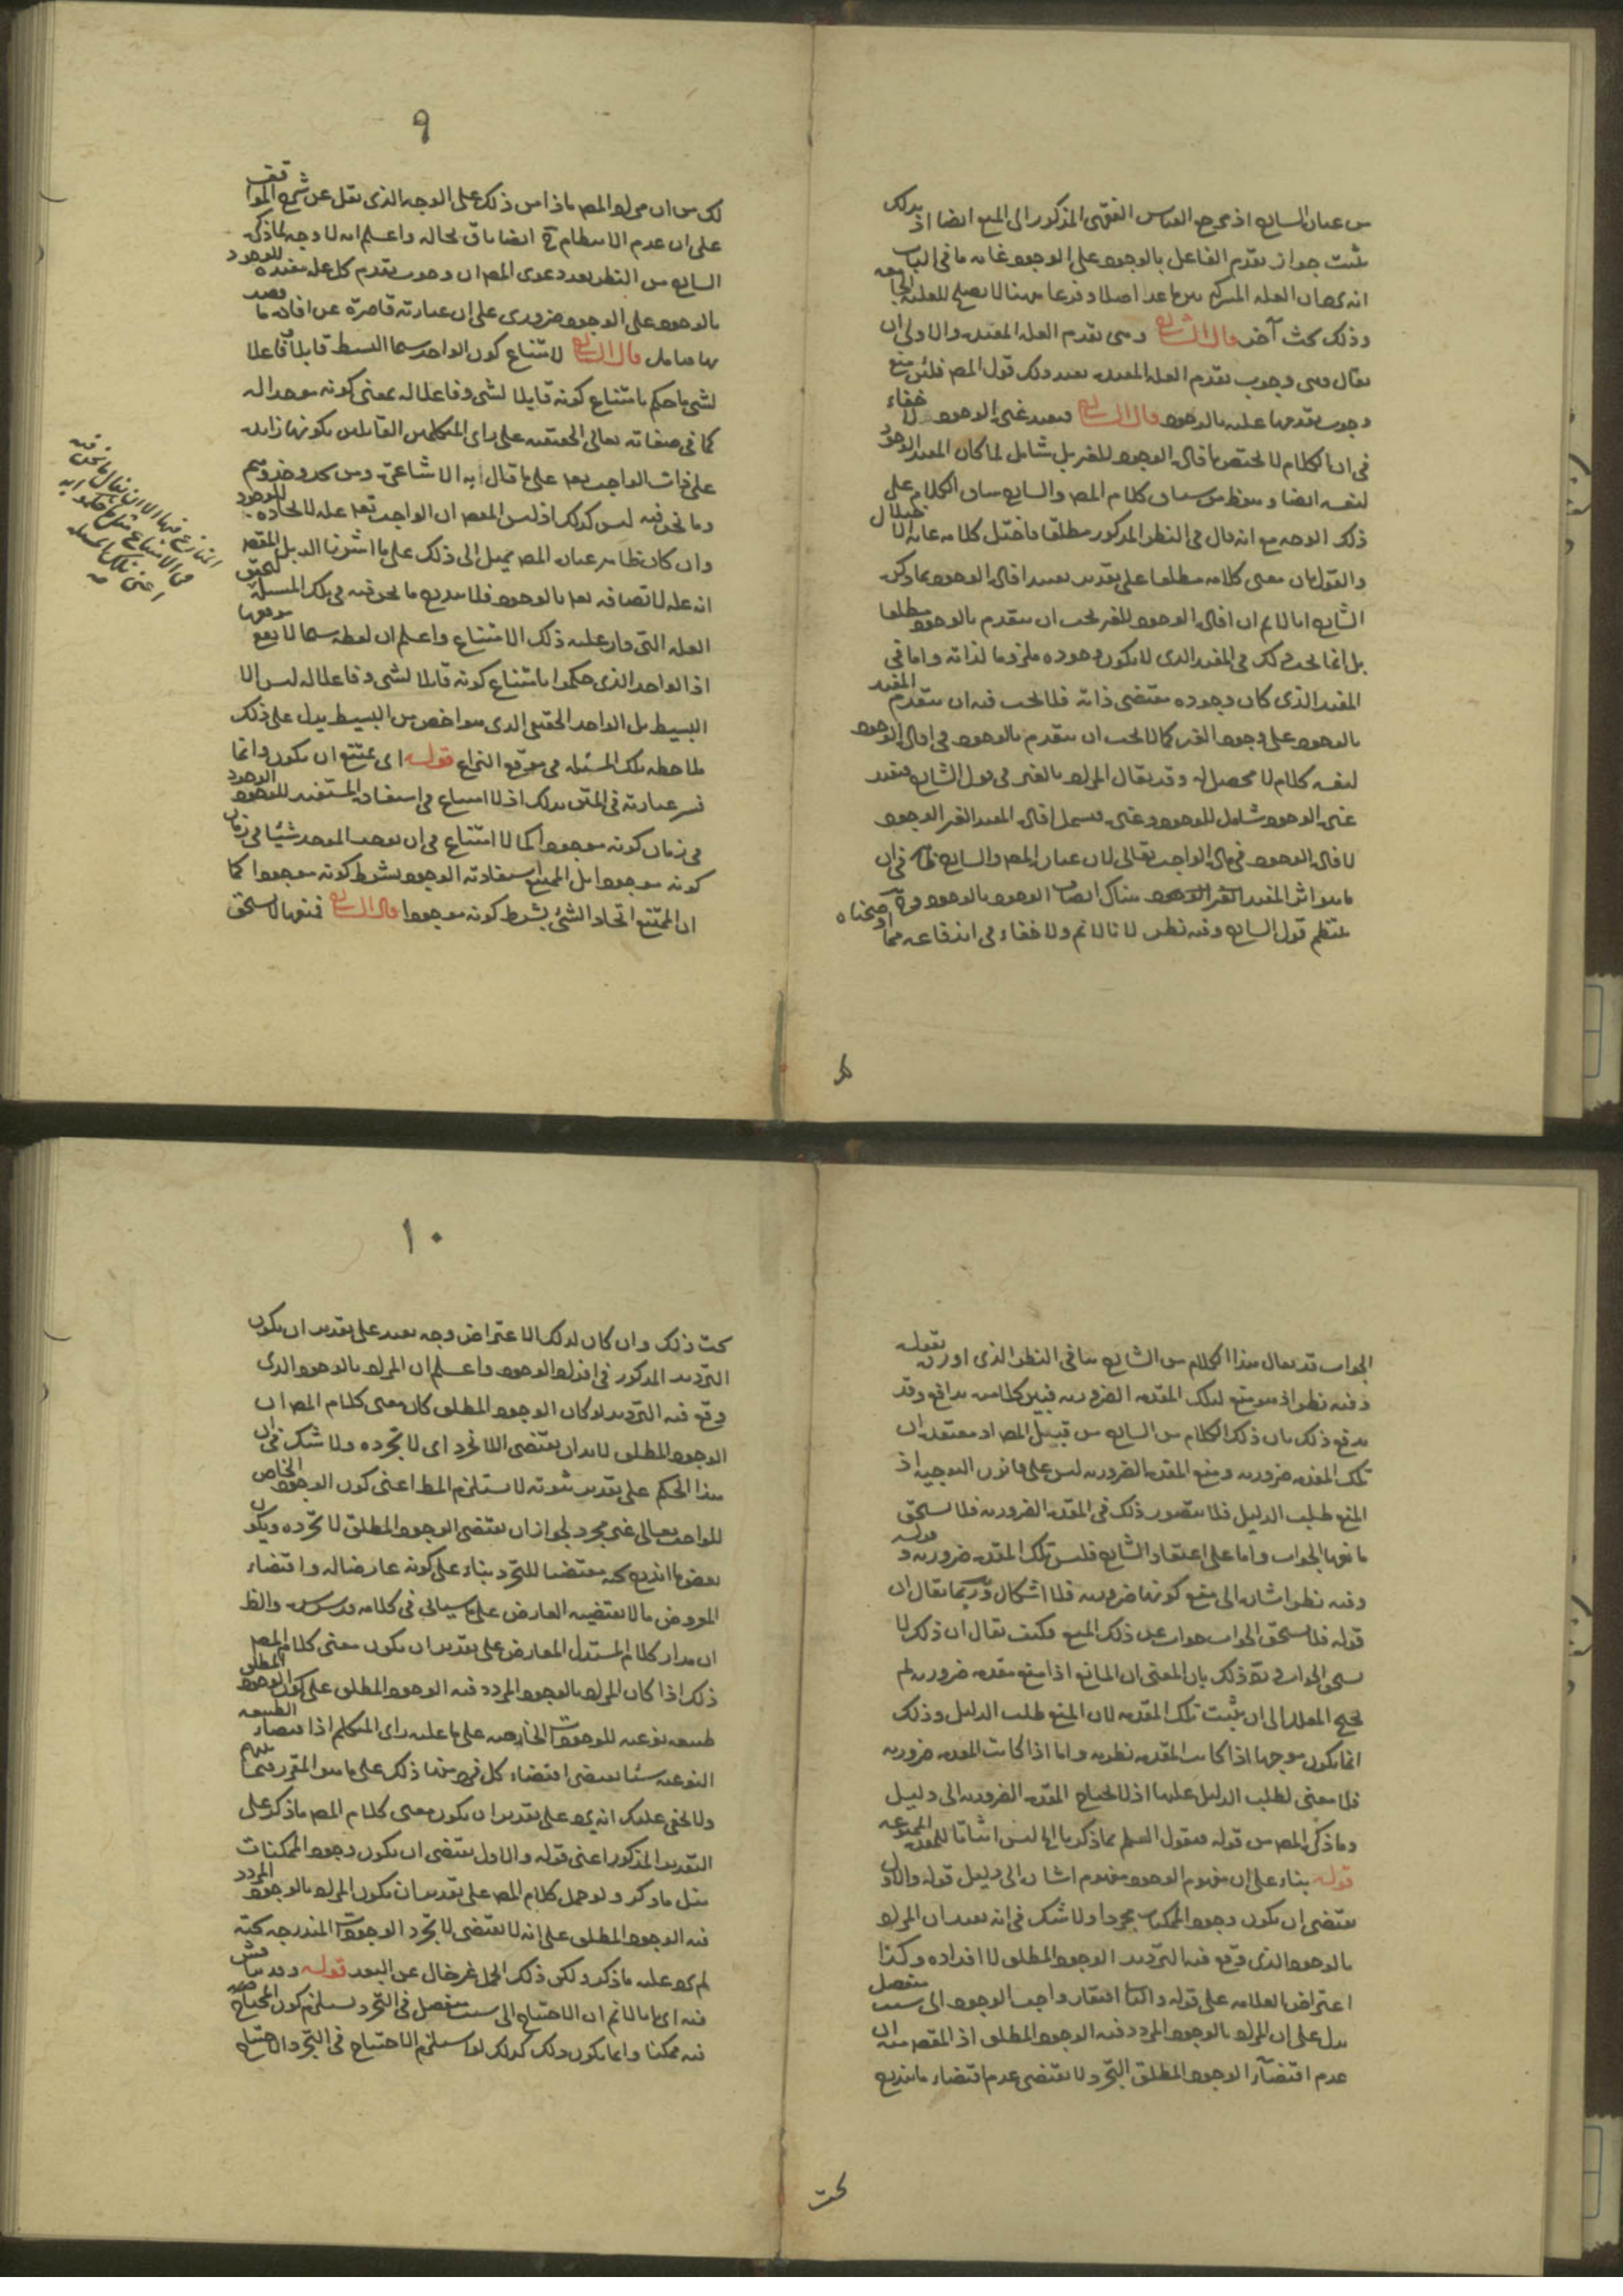 من عبارة الشارح اذ مرجع القياس الفقهى المذكور الى المنع ايضا اذ بذلك
يثبت جواز تقدم الفاعل بالوجود على الوجود غاية ما فى الباب
انه العلة اصلا وفرعا هنا لا يصلح للعلية
وذلك بحث آخر قال الشارح وهى تقدم العلة المفيدة والاولى ان
يقال وهى وجوب تقدم العلة المفيدة بعد ذلك قول المص فلئن منع
وجوب تقدمها عليه بالوجود قال الشارح مفيد غنى الوجود لا خفاء
فى ان الكلام لا يختص بافادة الوجود للغير بل شامل لما كان المفيد الوجود
لنفسه ايضا من سياق كلام المص والشارح ساق الكلام على
ذلك الوجه مع انه قال فى النظر المذكور مطلقا فاختل كلامه غاية الاختلال
والقول بان معنى كلامه مطلقا على تقدير افادة الوجود بما ذكره
الشارح انا لا نم ان افادة الوجود للغير يجب ان يتقدم بالوجود مطلقا
بل انما يجب ذلك فى المفيد الذى لا يكون وجوده ملزوما لذاته واما فى
المفيد الذى كان وجوده مقتضى ذاته فلا يجب فيه ان يتقدم المفيد
بالوجود على وجود الغير كما لا يجب ان يتقدم بالوجود فى افادة الوجود
لنفسه كلام لا محصل له وقد يقال المراد بالغير فى قول الشارح مفيد
غنى الوجود شامل للوجود وغيره فيشمل افادة المفيد الغير الوجود
لافادة الوجود فى مادة الواجب تعالى لان عبارة المص والشارح
ما هو اثر المفيد الغير الوجود هناك اتصاف الوجود بالوجود
ينتظم قول الشارح وفيه نظر لانا لا نم ولا خفاء فى اندفاعه مما اوضحناه
ط
٩
لك من ان مراد المص ماذا من ذلك على الوجه الذى نقل عن شرح المواقف
على ان عدم الانتظام ح ايضا باق بحاله واعلم انه لا وجه لما ذكره
الشارح من النظر بعد دعوى المص ان وجوب تقدم كل علة مفيدة للوجود
بالوجود على الوجود ضرورى على ان عبارته قاصرة عن افادة ما قصد
بها تأمل قال الشارح لامتناع كون الواحد سيما البسيط قابلا وفاعلا
لشى ما حكم بامتناع كونه قابلا لشى وفاعلا له بمعنى كونه موجدا له
كما فى صفاته تعالى الحقيقية على راى المتكلمين القائلين بكونها زائدة
على ذات الواجب تعالى على ما قال به الاشاعرة ومن
وما نحن فيه ليس كذلك اذ ليس المقصود ان الواجب تعالى علة لايجاده للوجود
وان كان ظاهر عبارة المص يميل الى ذلك على ما اشرنا اليه بل المقصود
انه علة لاتصافه تعالى بالوجود فلا يندرج ما نحن فيه فى تلك المسئلة
العلة التى دار عليه ذلك الامتناع واعلم ان لفظة سيما لا يقع موقعها
اذ الواحد الذى حكموا بامتناع كونه قابلا لشى وفاعلا له ليس الا
البسيط بل الواحد الحقيقى الذى هو اخص من البسيط يدل على ذلك
ملاحظة تلك المسئلة فى موقع النزاع قوله اى يمتنع ان يكون وانما
فسر عبارته فى المتن بذلك اذ لا امتناع فى استفادة المستفيد للوجود الوجود
فى زمان كونه موجودا كما لا امتناع فى ان يوجد الموجد شيئا فى زمان
كونه موجودا بل الممتنع استفادته الوجود بشرط كونه موجودا كما
ان الممتنع اتحاد الشئ بشرط كونه موجودا قال الشارح فمنعها لا يستحق
الجواب قد يقال هذا الكلام من الشارح ينافى النظر الذى اورده بقوله
وفيه نظر اذ هو منع لتلك المقدمة الضرورية فبين كلاميه تدافع وقد
يدفع ذلك بان ذلك الكلام من الشارح من قبيل المص اذ معتقده ان
تلك المقدمة ضرورية ومنع المقدمة الضرورية ليس على قانون التوجيه اذ
المنع طلب الدليل فلا يتصور ذلك فى المقدمة الضرورية فلا يستحق
مانعها الجواب واما على اعتقاد الشارح فليس تلك المقدمة ضرورية وقوله
وفيه نظر اشارة الى منع كونها ضرورية فلا اشكال وربما يقال ان
قوله فلا يستحق الجواب جواب عن ذلك المنع فكيف يقال ان ذلك لا
يستحق الجواب ويرد ذلك بان المعنى ان المانع اذا منع مقدمة ضرورية لم
يحتج المعلل الى ان يثبت تلك المقدمة لان المنع طلب الدليل وذلك
انما يكون موجها اذا كانت المقدمة نظرية واما اذا كانت المقدمة ضرورية
فلا معنى لطلب الدليل عليها اذ لا يحتاج المقدمة الضرورية الى دليل
وما ذكره المص من قوله فنقول العلم بما ذكرنا ليس اثباتا للمقدمة الممنوعة
قوله بناء على ان مفهوم الوجود مفهوم اشارة الى دليل قوله والاول
يقتضى ان يكون وجود الممكنات مجردا ولا شك فى انه بعد ان المراد
بالوجود الذى وقع فيه الترديد الوجود المطلق لا افراده وكذا
اعتراض العلامة على قوله والثانى افتقار واجب الوجود الى سبب منفصل
يدل على ان المراد بالوجود المردد فيه الوجود المطلق اذ المقصود منه ان
عدم اقتضاء الوجود المطلق التجرد لا يقتضى عدم اقتضاء ما يندرج
تحت
١٠
تحت ذلك وان كان لذلك الاعتراض وجه بعيد على تقدير ان يكون
الترديد المذكور فى افراد الوجود واعلم ان المراد بالوجود الذى
وقع فيه الترديد لو كان الوجود المطلق كان معنى كلام المص ان
الوجود المطلق لا بد ان يقتضى اللاتجرد اى لا تجرده ولا شك فى ان
هذا الحكم على تقدير ثبوته لا يستلزم المط اعنى كون الوجود الخاص
للواجب تعالى غير مجرد لجواز ان يقتضى الوجود المطلق لا تجرده ويكون
بعض ما اندرج تحته مقتضيا للتجرد بناء على كونه عارضا له واقتضاء
المعروض ما لا يقتضيه العارض على ما سيأتى فى كلامه قدس سره والظ
ان مدار كلام المستدل المعارض على تقدير ان يكون معنى كلام المص
ذلك اذا كان المراد بالوجود المردد فيه الوجود المطلق على كون الوجود المطلق
طبيعة نوعية للوجودات الخارجية على ما عليه راى المتكلم اذ اقتضاء الطبيعة
النوعية شيئا يقتضى اقتضاء كل فرد منها ذلك على ما هو المقرر فيما بينهم
ولا يخفى عليك انه يرد على تقدير ان يكون معنى كلام المص ما ذكر على
التقدير المذكور اعنى قوله والاول يقتضى ان يكون وجود الممكنات
مثل ما ذكر ولو حمل كلام المص على تقدير ان يكون المراد بالوجود المردد
فيه الوجود المطلق على انه لا يقتضى لا تجرد الوجودات المندرجة تحته
لم يرد عليه ما ذكر ولكن ذلك الحمل غير خال عن البعد قوله وقد يناقش
فيه اى بانا لا نم ان الاحتياج الى سبب منفصل فى التجرد يستلزم كون المحتاج
فيه ممكنا وانما يكون ذلك كذلك لو استلزم الاحتياج فى التجرد الاحتياج